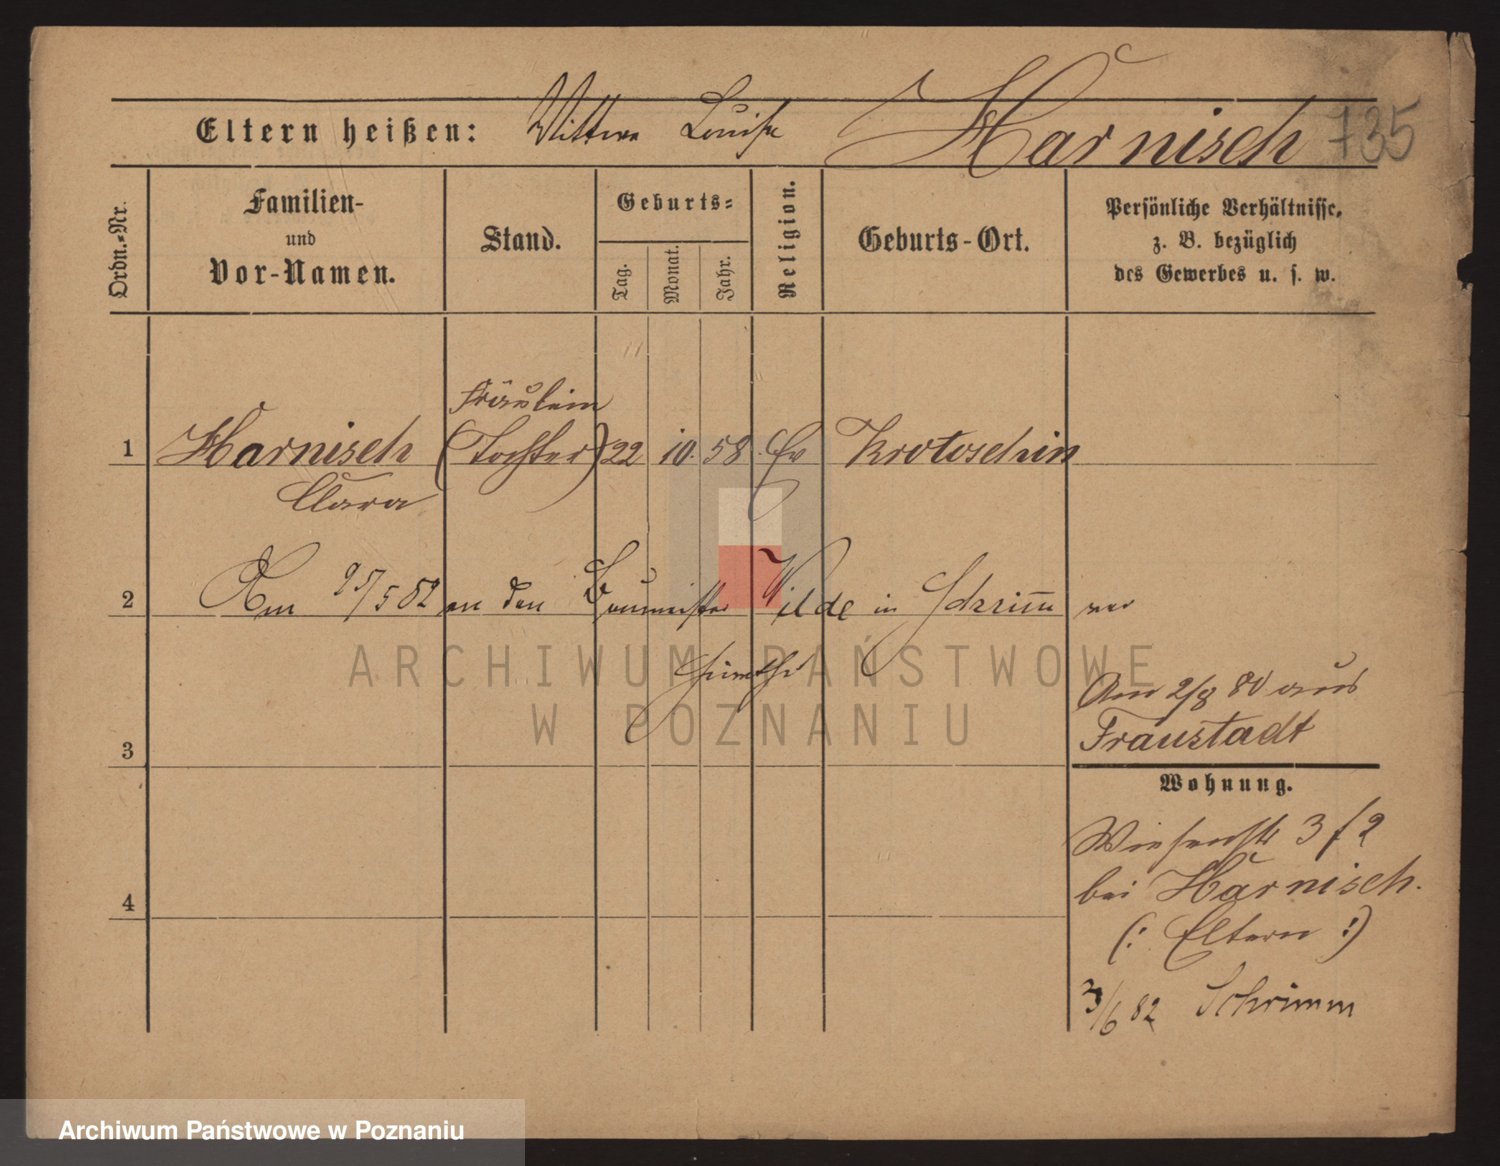 Eltern heißen: Wittwe Louise Harnisch 735
Ordn.-Nr.
Familien-
und
Vor-Namen.
Stand.
Geburts-
Tag.
Monat.
Jahr.
Religion.
Geburts-Ort.
Persönliche Verhältnisse,
z. B. bezüglich
des Gewerbes u. s. w.
Fräulein
1 Harnisch (Tochter) 22 10. 58 Ev Krotoschin
Clara
2 Am 25/5 82 an den Baumeister Wilde in Schrimm ver
ARCHIWUM PAŃSTWOWE
W POZNANIU
Am 2/8 80 aus
Fraustadt
3
Wohnung.
Wiesenstr 3 f 2
bei Harnisch.
4
(: Eltern :)
3/6 82 Schrimm
Archiwum Państwowe w Poznaniu